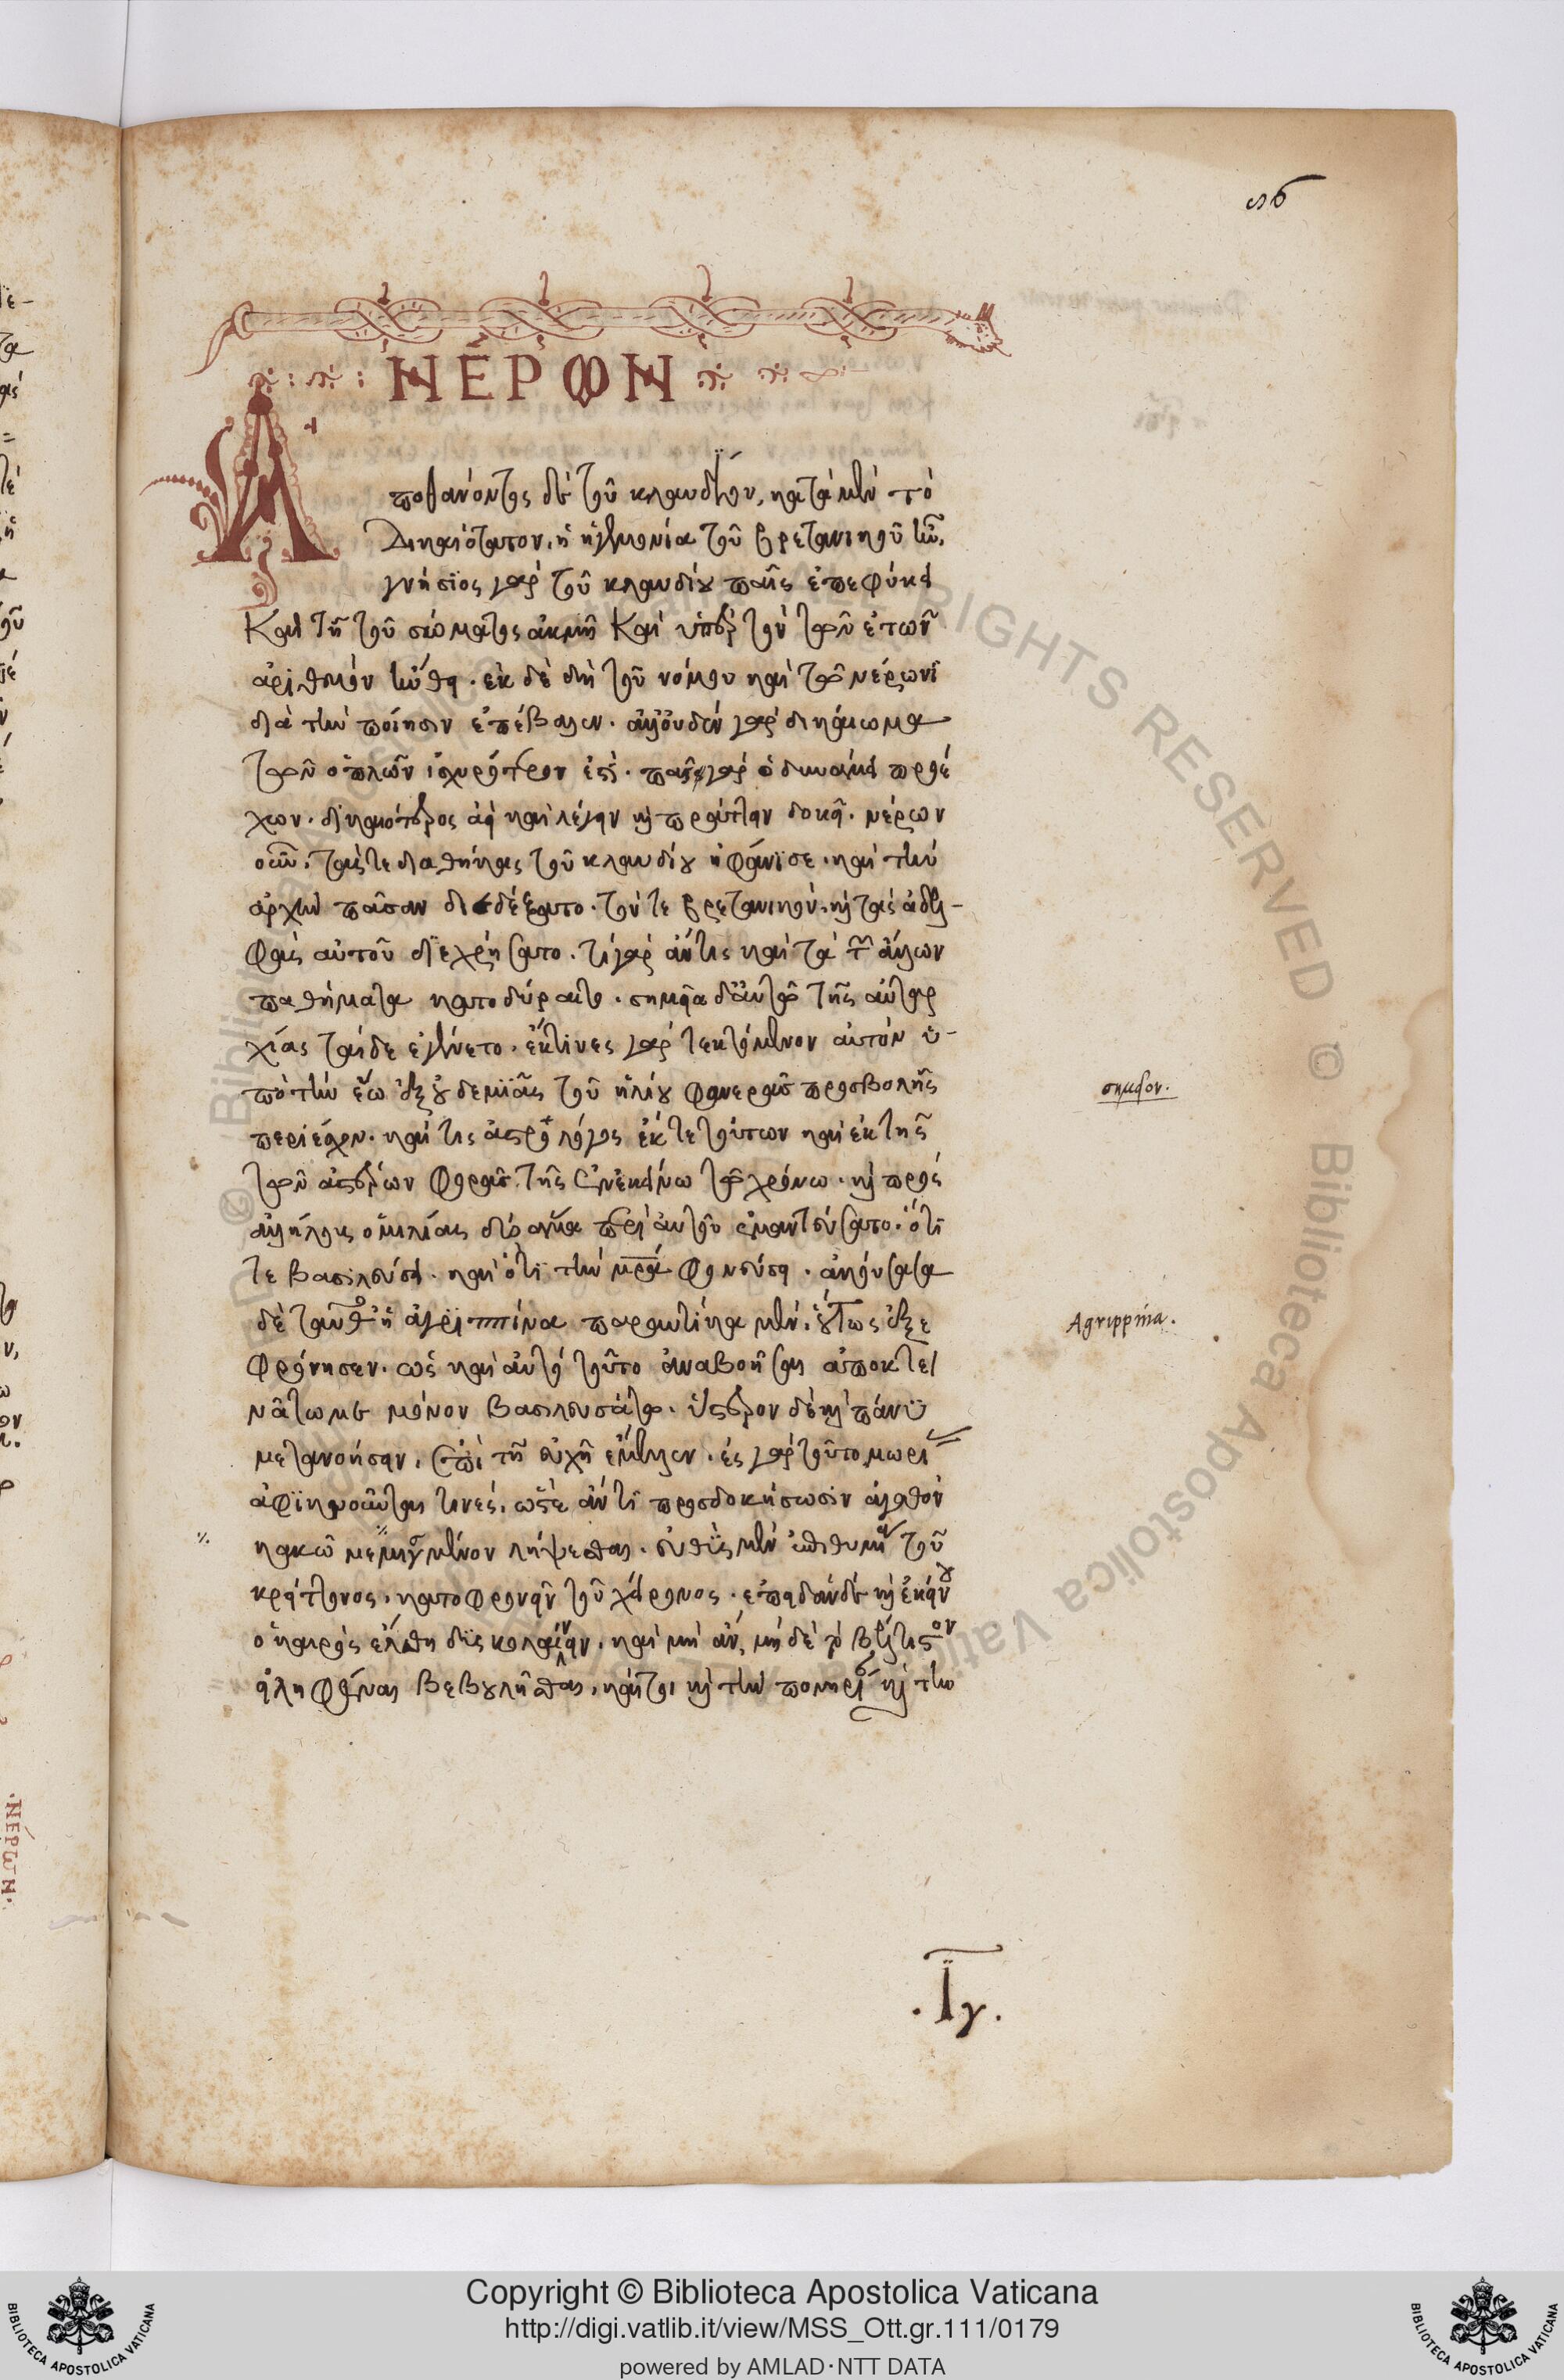 ϟϛ
ΝΈΡΩΝ
Ἀ
ποθανόντος δὲ τοῦ κλαυδίου, κατὰ μὲν τὸ
Δικαιότατον, ἡ ἡγεμονία τοῦ βρετανικοῦ ἦν.
γνήσϊος γὰρ τοῦ κλαυδίου παῖς ἐπεφύκει
Καὶ τῇ τοῦ σώματος ἀκμῇ Καὶ ὑπὲρ τὸν τῶν ἐτῶν
ἀριθμὸν ἤνθει. ἐκ δὲ δὴ τοῦ νόμου καὶ τῶ νέρωνϊ
διὰ τὴν ποίησιν ἐπέβαλεν. ἀλλ' οὐδὲν γὰρ δικαίωμα
τῶν ὅπλων ἰσχυρότερον ἐστὶ. πᾶς γὰρ ὁ δυνάμει προέ
χων. δικαιότερος ἀεὶ καὶ λέγειν καὶ πράττειν δοκεῖ. νέρων
οὖν. τάς τε διαθήκας τοῦ κλαυδίου ἠφάνϊσε. καὶ τὴν
ἀρχὴν πᾶσαν διεδέξατο. τόν τε βρετανικὸν, καὶ τὰς ἀδελ-
φὰς αὐτοῦ διεχρήσατο. τί γὰρ ἄν τις καὶ τὰ τῶν ἄλλων
παθήματα κατοδύραιτο. σημεῖα δ' αὐτῶ τῆς αὐταρ
χίας τάδε ἐγένετο. ἀκτῖνες γὰρ τεκτόμενον αὐτὸν ὑ-
πὸ τὴν ἕω ἐξ οὐδεμϊᾶς τοῦ ἡλίου φανερᾶς προσβολῆς
περιέσχον. καί τις ἀστρολόγος ἔκ τε τούτων καὶ ἐκ τῆς
τῶν ἀστέρων φορᾶς τῆς ἐν ἐκείνω τῶ χρόνω. καὶ πρὸς
ἀλλήλους ὁμιλίας δύο ἅμα περὶ αὐτοῦ ἐμαντεύσατο. ὅτϊ
τε βασιλεύσει. καὶ ὅτϊ τὴν μρα φονεύσει. ἀκούσασα
δὲ ταῦθ' ἡ ἀγρϊππίνα παραυτίκα μὲν. οὕτως ἐξε
φρόνησεν. ὡς καὶ αὐτὸ τοῦτο ἀναβοῆσαι ἀποκτει
νάτω με μόνον βασιλευσάτω. ὕστερον δὲ καὶ πάνϋ
μετανοήσειν, ἐπὶ τῇ εὐχῇ ἔμελλεν. ἐς γὰρ τοῦτο μωρί
ἀφϊκνοῦνται τινὲς, ὥστε ἄν τϊ προσδοκήσωσϊν ἀγαθὸν
κακῶ μεμιγμένον λήψεσθαι. εὐθὺς μὲν ἐπιθυμία τοῦ
κρείττονος. καταφρονεῖν τοῦ χείρονος. ἐπειδὰν δὲ καὶ ἐκείνου
ὁ καιρὸς ἔλθη δυσκολαίνειν. καὶ μὴ ἂν, μὴ δὲ τὸ βέλτιστον
εἰληφέναι βεβουλῆσθαι. καίτοι καὶ τὴν πονηρί καὶ τὴν
σημεῖον.
Agrippina.
.Ιγ.
ΝΈΡΩΝ.
© Biblioteca Apostolica Vaticana ALL RIGHTS RESERVED © Biblioteca Apostolica Vaticana
Copyright © Biblioteca Apostolica Vaticana
http://digi.vatlib.it/view/MSS_Ott.gr.111/0179
powered by AMLAD·NTT DATA
BIBLIOTECA APOSTOLICA VATICANA
BIBLIOTECA APOSTOLICA VATICANA